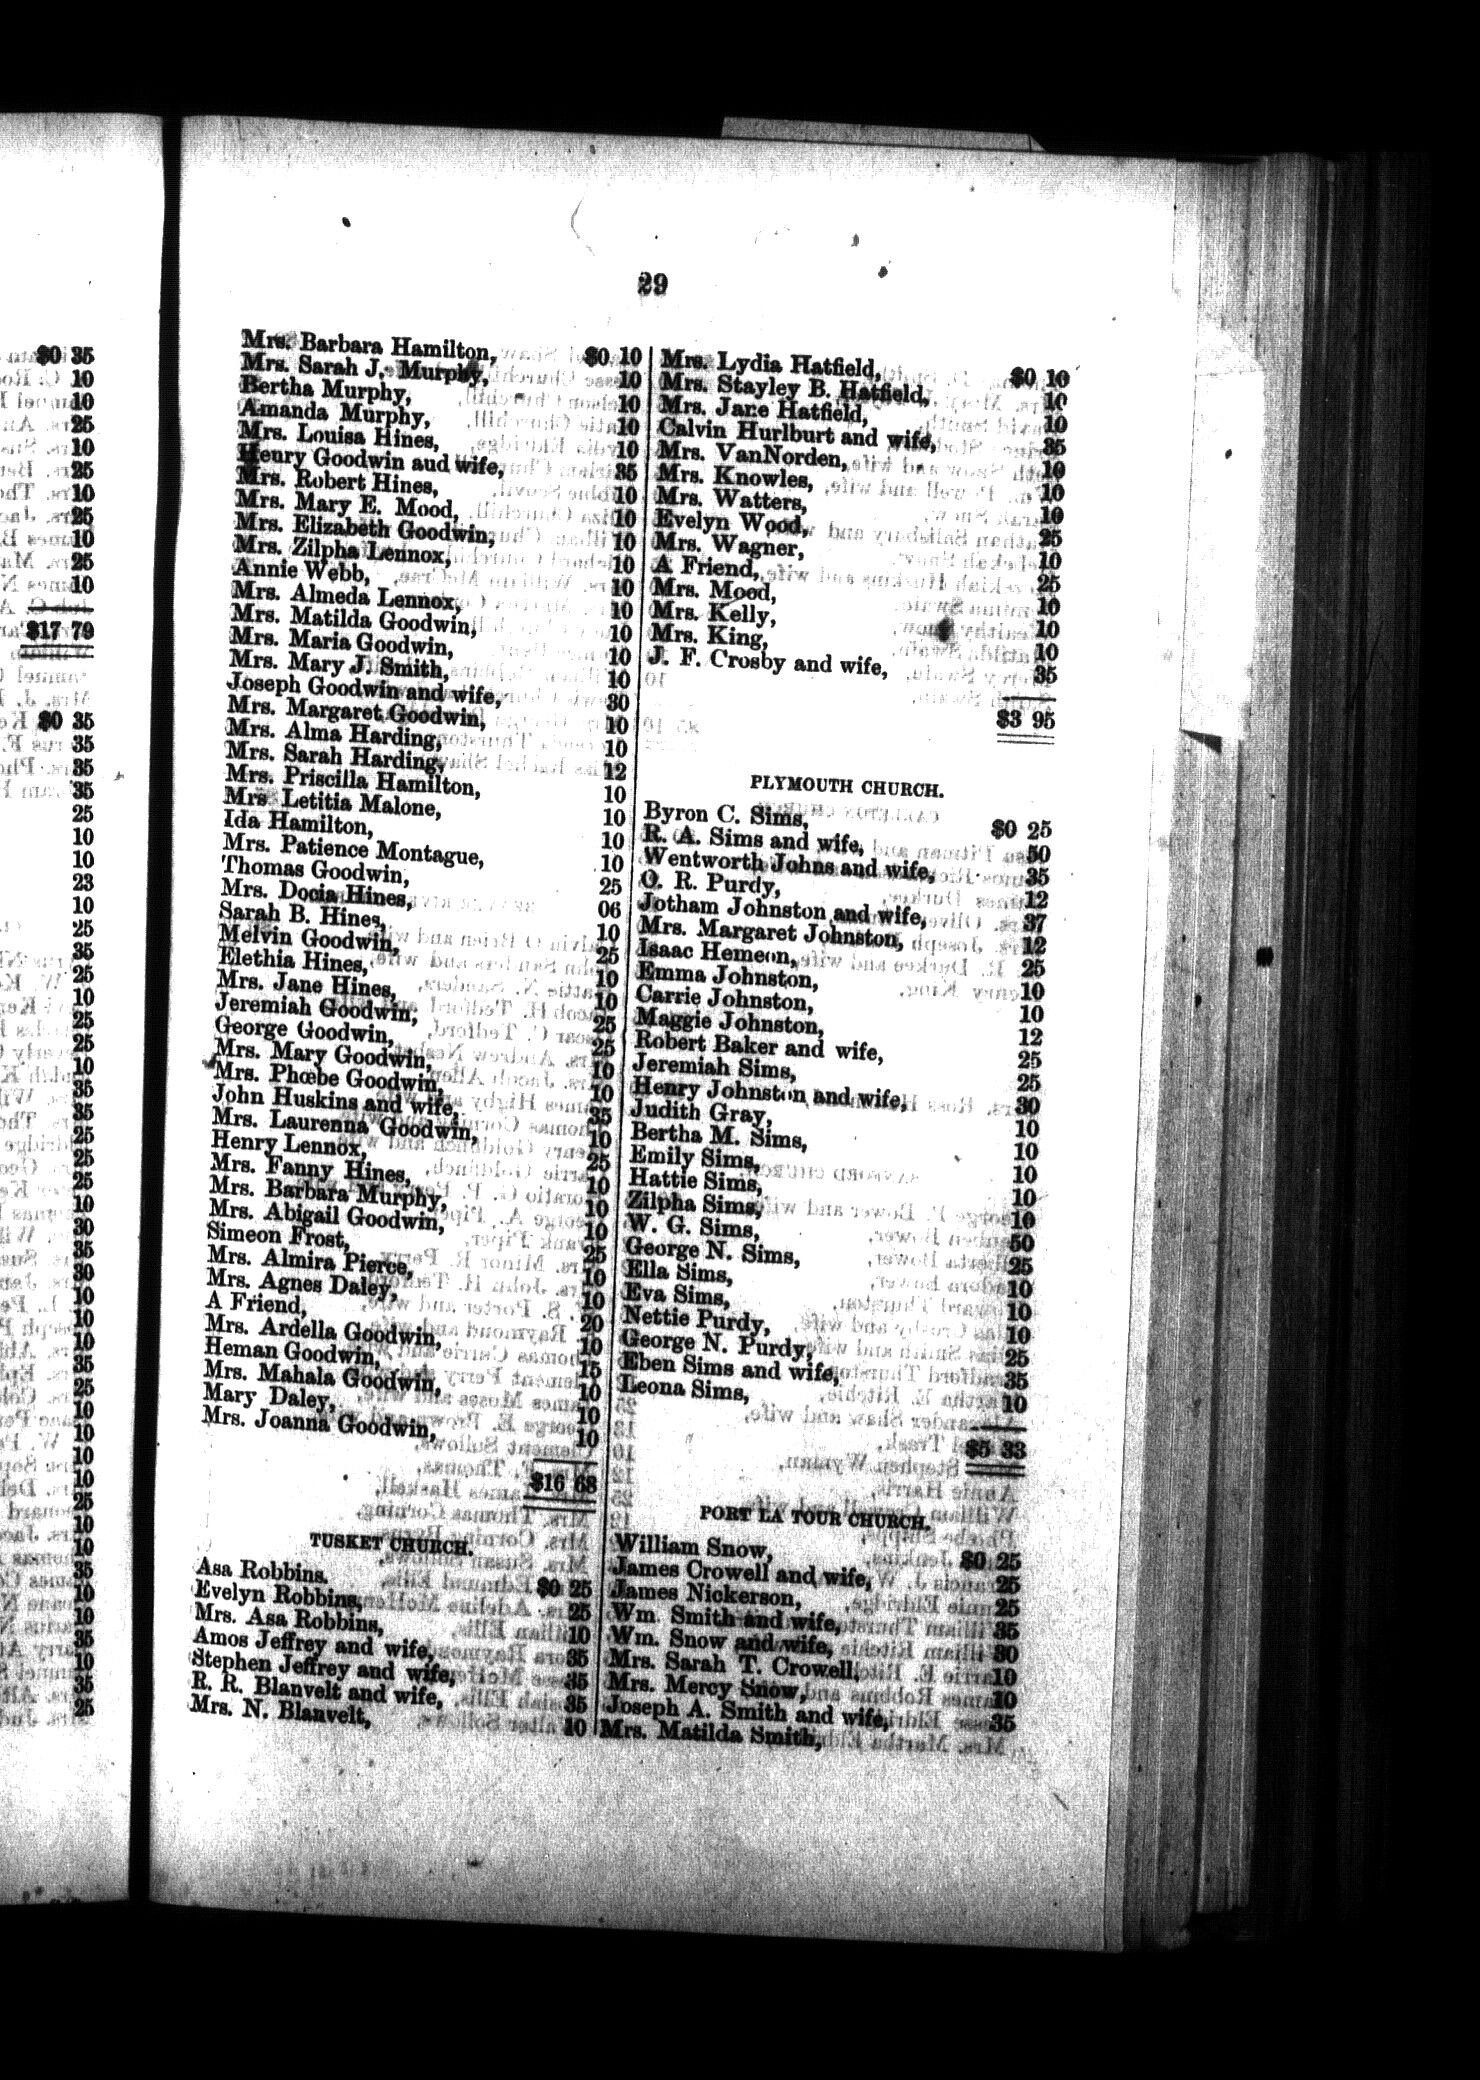 $0 35
10
10
25
10
25
10
25
10
25
10
$17 79
$0 35
35
35
35
25
10
10
23
10
25
35
25
10
25
25
10
35
35
25
25
25
10
30
35
30
10
10
10
35
25
10
10
10
10
25
10
10
35
10
10
35
10
35
25
29
Mrs. Barbara Hamilton, $0 10
Mrs. Sarah J. Murphy, 10
Bertha Murphy, 10
Amanda Murphy, 10
Mrs. Louisa Hines, 10
Henry Goodwin aud wife, 35
Mrs. Robert Hines, 10
Mrs. Mary E. Mood, 10
Mrs. Elizabeth Goodwin, 10
Mrs. Zilpha Lennox, 10
Annie Webb, 10
Mrs. Almeda Lennox, 10
Mrs. Matilda Goodwin, 10
Mrs. Maria Goodwin, 10
Mrs. Mary J. Smith, 10
Joseph Goodwin and wife, 30
Mrs. Margaret Goodwin, 10
Mrs. Alma Harding, 10
Mrs. Sarah Harding, 12
Mrs. Priscilla Hamilton, 10
Mrs Letitia Malone, 10
Ida Hamilton, 10
Mrs. Patience Montague, 10
Thomas Goodwin, 25
Mrs. Docia Hines, 06
Sarah B. Hines, 10
Melvin Goodwin, 25
Elethia Hines, 10
Mrs. Jane Hines, 10
Jeremiah Goodwin, 25
George Goodwin, 25
Mrs. Mary Goodwin, 10
Mrs. Phœbe Goodwin, 10
John Huskins and wife, 35
Mrs. Laurenna Goodwin, 10
Henry Lennox, 25
Mrs. Fanny Hines, 10
Mrs. Barbara Murphy, 10
Mrs. Abigail Goodwin, 10
Simeon Frost, 25
Mrs. Almira Pierce, 10
Mrs. Agnes Daley, 10
A Friend, 20
Mrs. Ardella Goodwin, 10
Heman Goodwin, 15
Mrs. Mahala Goodwin, 10
Mary Daley, 10
Mrs. Joanna Goodwin, 10
$16 68
TUSKET CHURCH.
Asa Robbins. $0 25
Evelyn Robbins, 25
Mrs. Asa Robbins, 10
Amos Jeffrey and wife, 35
Stephen Jeffrey and wife, 35
R. R. Blanvelt and wife, 35
Mrs. N. Blanvelt, 10
Mrs. Lydia Hatfield, $0 10
Mrs. Stayley B. Hatfield, 10
Mrs. Jane Hatfield, 10
Calvin Hurlburt and wife, 35
Mrs. VanNorden, 10
Mrs. Knowles, 10
Mrs. Watters, 10
Evelyn Wood, 25
Mrs. Wagner, 10
A Friend, 25
Mrs. Mood, 10
Mrs. Kelly, 10
Mrs. King, 10
J. F. Crosby and wife, 35
$3 95
PLYMOUTH CHURCH.
Byron C. Sims, $0 25
R. A. Sims and wife, 50
Wentworth Johns and wife, 35
O. R. Purdy, 12
Jotham Johnston and wife, 37
Mrs. Margaret Johnston, 12
Isaac Hemeon, 25
Emma Johnston, 10
Carrie Johnston, 10
Maggie Johnston, 12
Robert Baker and wife, 25
Jeremiah Sims, 25
Henry Johnston and wife, 30
Judith Gray, 10
Bertha M. Sims, 10
Emily Sims, 10
Hattie Sims, 10
Zilpha Sims, 10
W. G. Sims, 50
George N. Sims, 25
Ella Sims, 10
Eva Sims, 10
Nettie Purdy, 10
George N. Purdy, 25
Eben Sims and wife, 35
Leona Sims, 10
$5 33
PORT LA TOUR CHURCH.
William Snow, $0 25
James Crowell and wife, 25
James Nickerson, 25
Wm. Smith and wife, 35
Wm. Snow and wife, 30
Mrs. Sarah T. Crowell, 10
Mrs. Mercy Snow, 10
Joseph A. Smith and wife, 35
Mrs. Matilda Smith,